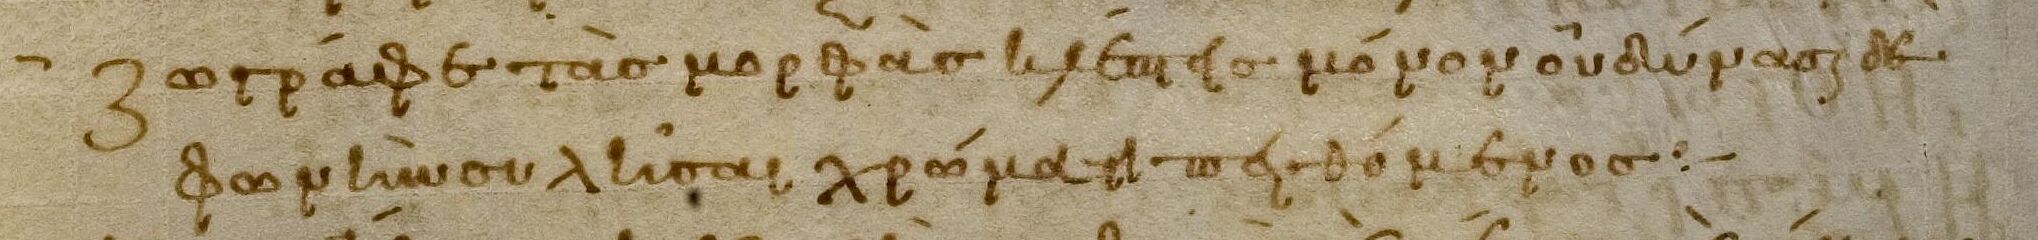 Ζωγράφε τὰς μορφὰς κλέπτεις μόνον οὐ δύνασαι δὲ
φωνὴν συλῆσαι χρώματι πειθόμενος :~